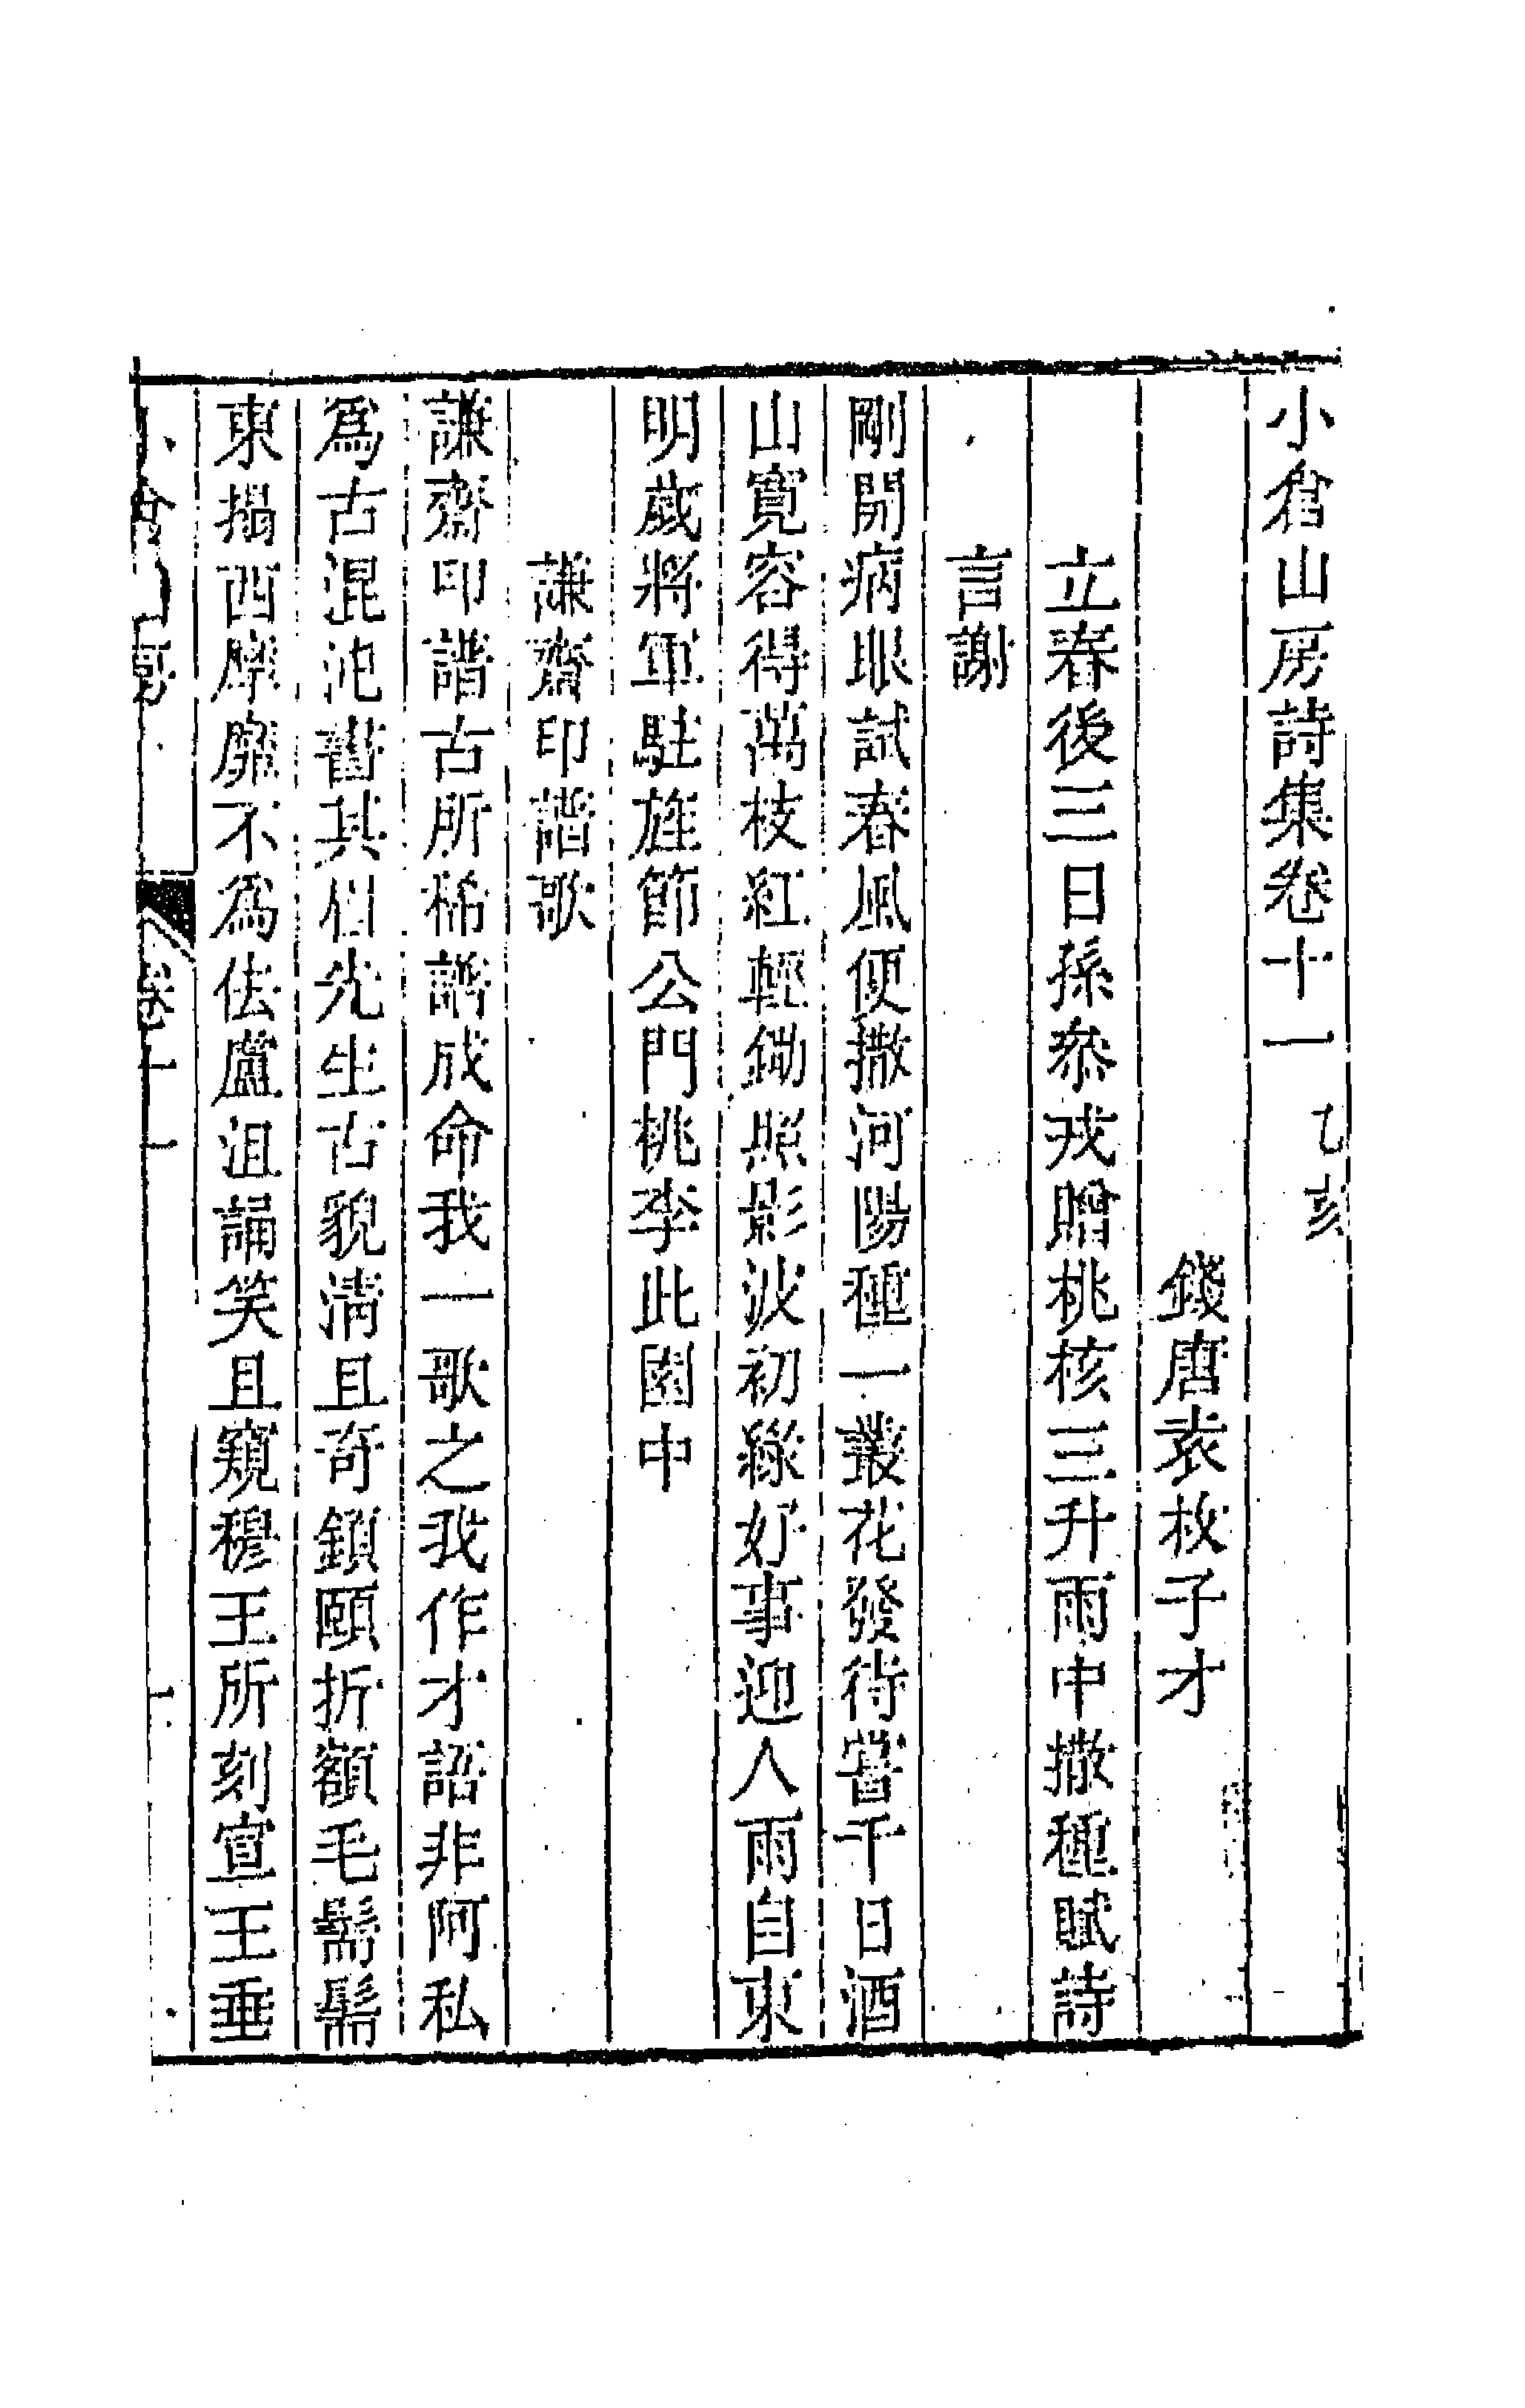 小倉山房詩集卷十一　乙亥
錢唐袁枚子才
立春後三日孫叅戎贈桃核三升雨中撒種賦詩
言謝
剛開病眼試春風便撒河陽種一叢花發待嘗千日酒
山寬容得萬枝紅輕鋤照影波初綠好事迎人雨自東
明歲將軍駐旌節公門桃李此園中
謙齋印譜歌
謙齋印譜古所稀譜成命我一歌之我作才語非阿私
爲古混沌書其 先生古貌淸且奇鎖頤折額毛鬅鬅
東搨西摩靡不爲佉盧沮誦笑且窺穆王所刻宣王垂
小倉山房　卷十一　一